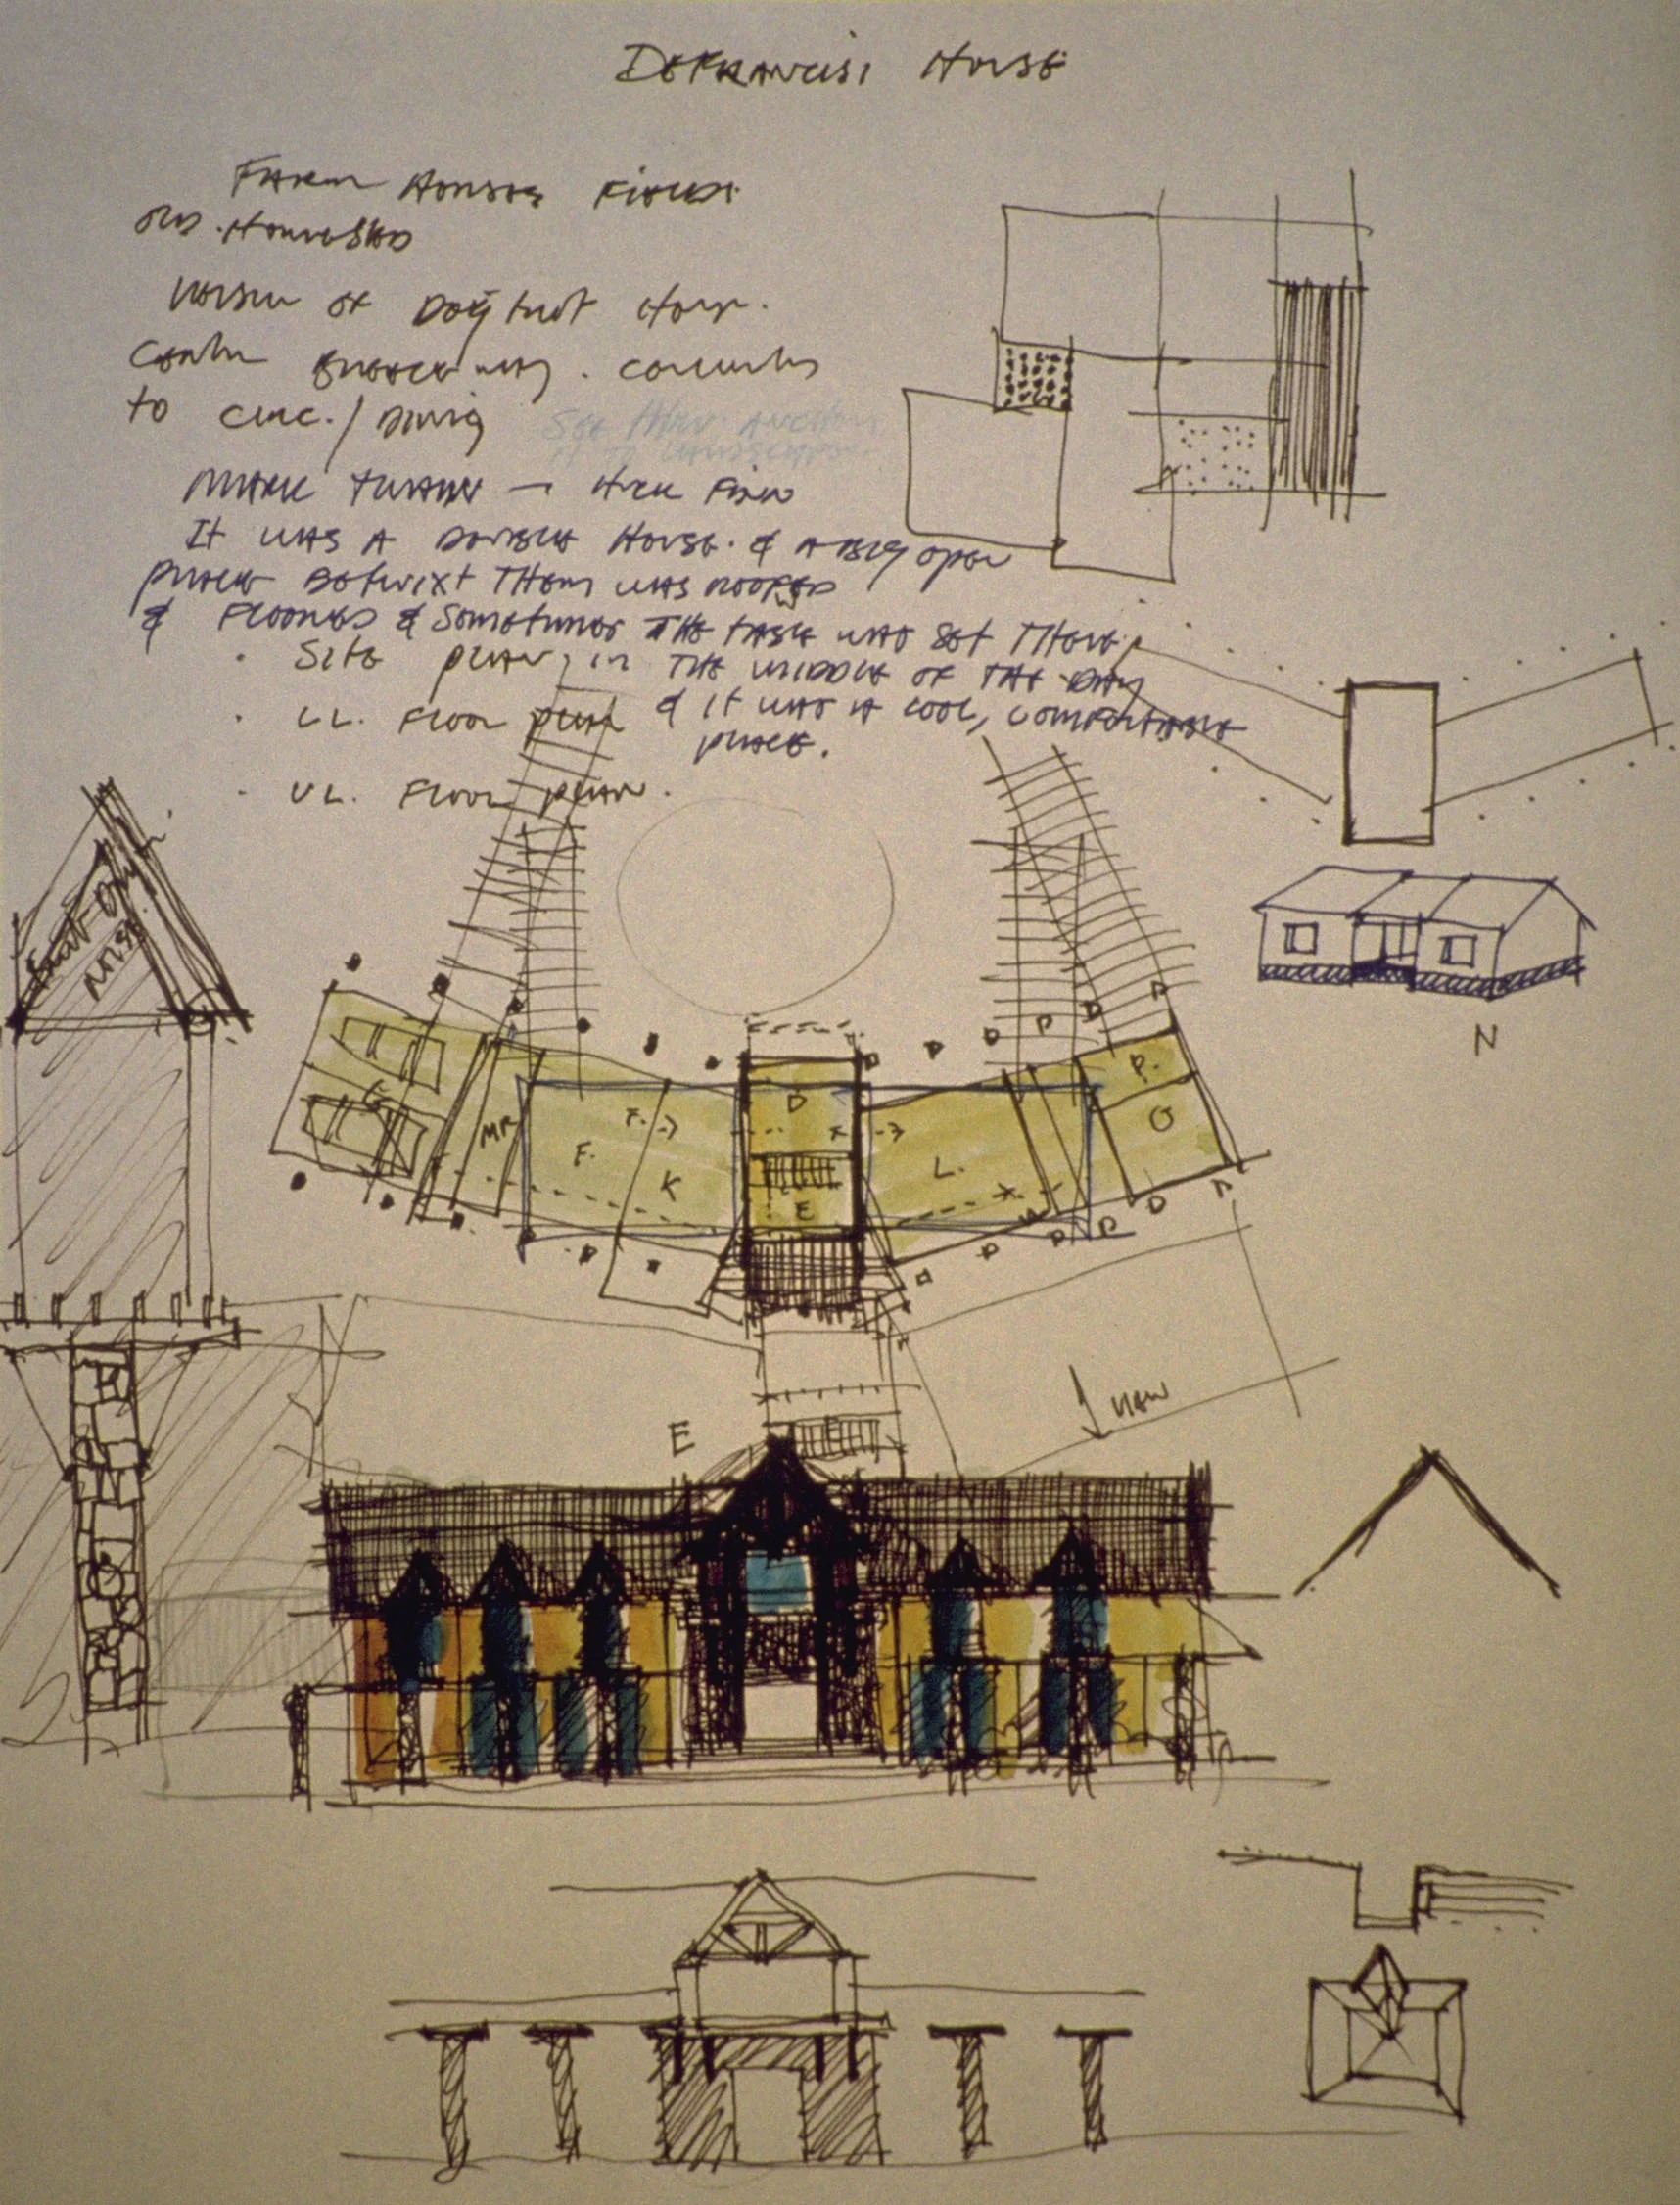 DEFRANCISI HOUSE
FARM HOUSES FIELDS
OLD HOMESTEAD
VERSION OF DOGTROT HOUSE.
CENTER BREEZEWAY. CONVERTED
TO CIRC. / DINING
SEE THRU
IT TO LANDSCAPE.
MARK TWAIN — HUCK FINN
IT WAS A DOUBLE HOUSE. & A BIG OPEN
PLACE BETWIXT THEM WAS ROOFED
& FLOORED & SOMETIMES THE TABLE WAS SET THERE
· SITE PLAN
IN THE MIDDLE OF THE DAY
· LL. FLOOR PLAN
& IT WAS A COOL, COMFORTABLE
PLACE.
· UL. FLOOR PLAN.
N
G
MR
F.
K
D
E
L.
P.
O
VIEW
E